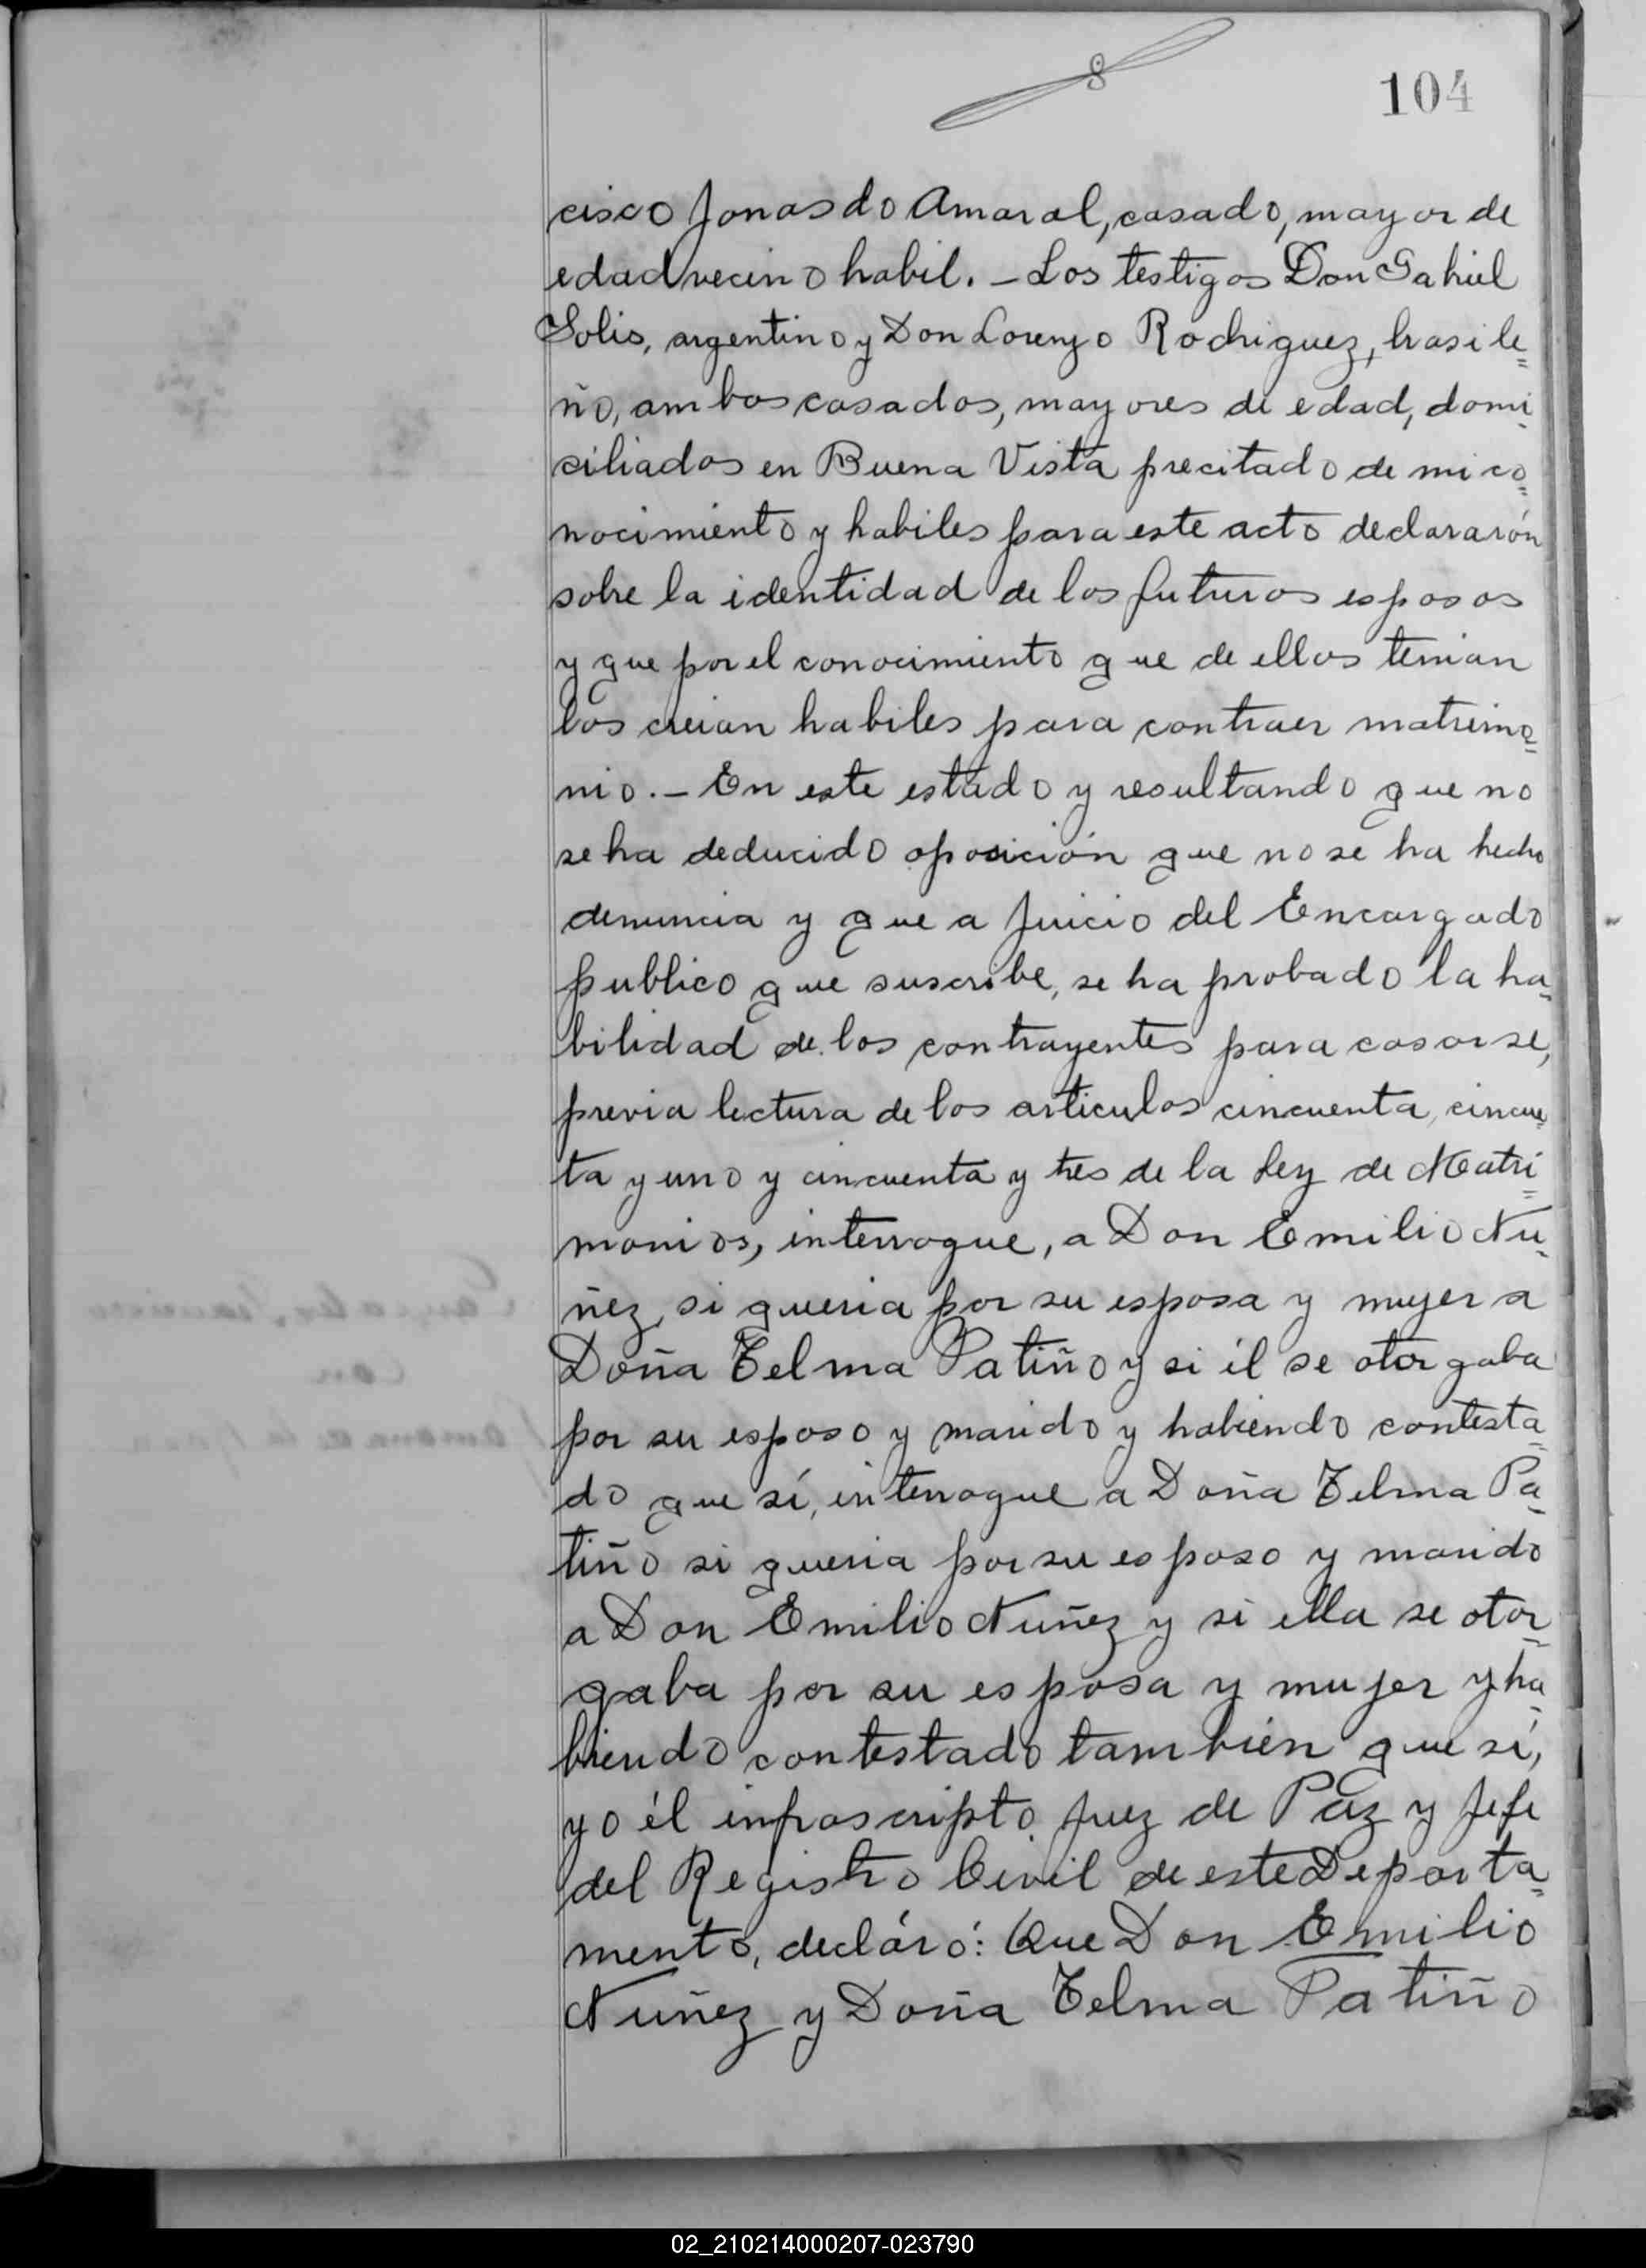 104
cisco Jonas do Amaral, casado, mayor de
edad vecino habil. - Los testigos Don Gabriel
Solis, argentino y Don Lorenzo Rodriguez, brasile=
ño, ambos casados, mayores de edad, domi-
ciliados en Buena Vista precitado de mi co=
nocimiento y habiles para este acto declararón
sobre la identidad de los futuros esposos
y que por el conocimiento que de ellos tenian
los creian habiles para contraer matrimo=
nio. - En este estado y resultando que no
se ha deducido oposición que no se ha hecho
denuncia y que a Juicio del Encargado
publico que suscribe, se ha probado la ha-
bilidad de los contrayentes para casarse,
previa lectura de los articulos cincuenta, cincuen-
ta y uno y cincuenta y tres de la Ley de Matri=
monios, interrogue, a Don Emilio Nu-
ñez, si queria por su esposa y mujer a
Doña Telma Patiño y si él se otorgaba
por su esposo y marido y habiendo contesta=
do que sí, interrogue a Doña Telma Pa-
tiño si queria por su esposo y marido
a Don Emilio Nuñez y si ella se otor-
gaba por su esposa y mujer y ha-
biendo contestado también que sí,
yo él infrascripto Juez de Paz y Jefe
del Registro Civil de este Departa-
mento, decláró: Que Don Emilio
Nuñez y Doña Telma Patiño
02_210214000207-023790